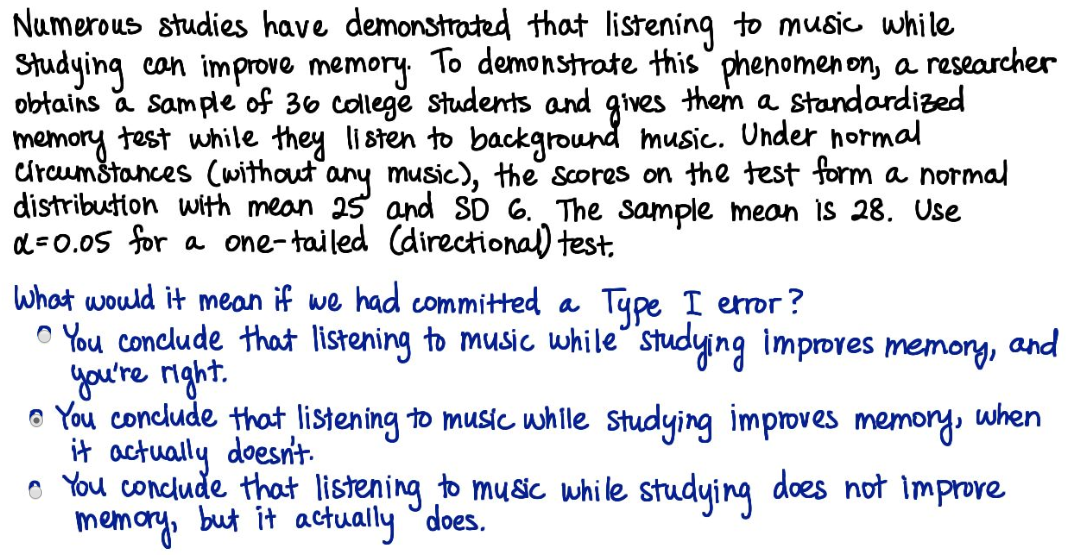 Numerous studies have demonstrated that listening to music while
Studying can improve memory. To demonstrate this phenomenon, a researcher
obtains a sample of 36 college students and gives them a standardized
memory test while they listen to background music. Under normal
circumstances (without any music), the scores on the test form a normal
distribution with mean 25 and SD 6. The sample mean is 28. Use
α=0.05 for a one-tailed (directional) test.
What would it mean if we had committed a Type I error?
You conclude that listening to music while studying improves memory, and
you're right.
You conclude that listening to music while studying improves memory, when
it actually doesn't.
You conclude that listening to music while studying does not improve
memory, but it actually does.